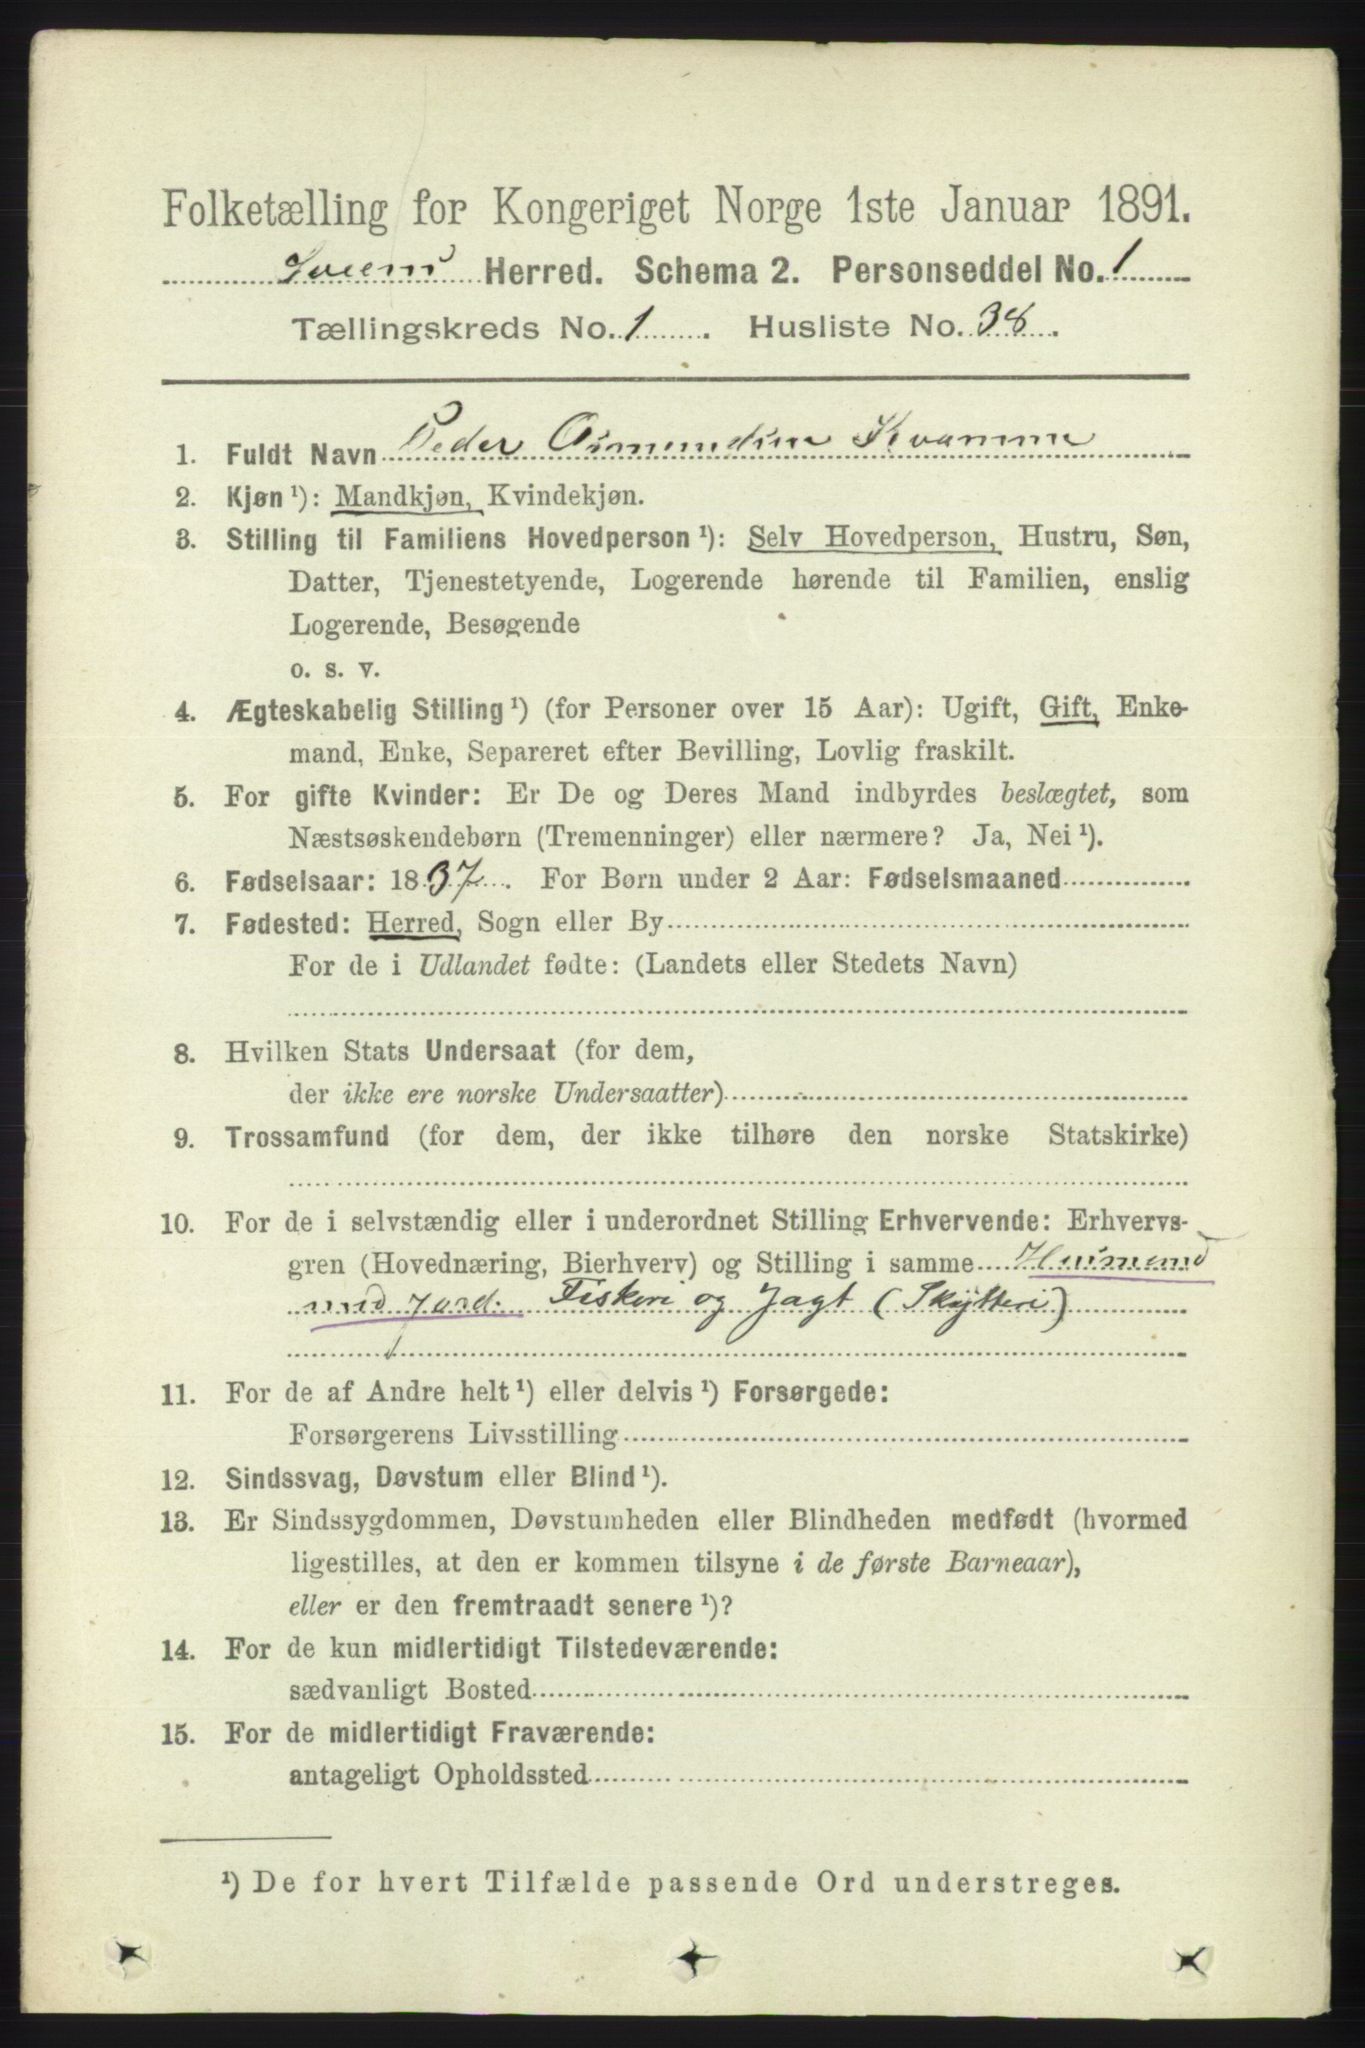 Folketælling for Kongeriget Norge 1ste Januar 1891.
Sveens Herred. Schema 2. Personseddel No. 1
Tællingskreds No. 1. Husliste No. 38.
1. Fuldt Navn Peder Osmundsen Kvamme
2. Kjøn ¹): Mandkjøn, Kvindekjøn.
3. Stilling til Familiens Hovedperson ¹): Selv Hovedperson, Hustru, Søn,
Datter, Tjenestetyende, Logerende hørende til Familien, enslig
Logerende, Besøgende
o. s. v.
4. Ægteskabelig Stilling ¹) (for Personer over 15 Aar): Ugift, Gift, Enke-
mand, Enke, Separeret efter Bevilling, Lovlig fraskilt.
5. For gifte Kvinder: Er De og Deres Mand indbyrdes beslægtet, som
Næstsøskendebørn (Tremenninger) eller nærmere? Ja, Nei ¹).
6. Fødselsaar: 1837. For Børn under 2 Aar: Fødselsmaaned
7. Fødested: Herred, Sogn eller By
For de i Udlandet fødte: (Landets eller Stedets Navn)
8. Hvilken Stats Undersaat (for dem,
der ikke ere norske Undersaatter)
9. Trossamfund (for dem, der ikke tilhøre den norske Statskirke)
10. For de i selvstændig eller i underordnet Stilling Erhvervende: Erhvervs-
gren (Hovednæring, Bierhverv) og Stilling i samme Husmand
med Jord. Fiskeri og Jagt (Skytteri)
11. For de af Andre helt ¹) eller delvis ¹) Forsørgede:
Forsørgerens Livsstilling
12. Sindssvag, Døvstum eller Blind ¹).
13. Er Sindssygdommen, Døvstumheden eller Blindheden medfødt (hvormed
ligestilles, at den er kommen tilsyne i de første Barneaar),
eller er den fremtraadt senere ¹)?
14. For de kun midlertidigt Tilstedeværende:
sædvanligt Bosted
15. For de midlertidigt Fraværende:
antageligt Opholdssted
¹) De for hvert Tilfælde passende Ord understreges.